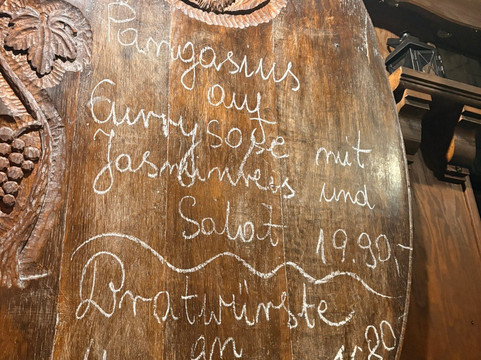 Pangasius
auf
Currysoße mit
Jasminreis und
Salat 19.90,-
Bratwürste
an